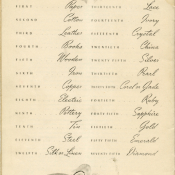 FIRST Paper THIRTEENTH Lace
SECOND Cotton FOURTEENTH Ivory
THIRD Leather FIFTEENTH Crystal
FOURTH Books TWENTIETH China
FIFTH Wooden TWENTY-FIFTH Silver
SIXTH Iron THIRTIETH Pearl
SEVENTH Copper THIRTY-FIFTH Coral or Jade
EIGHTH Electric FORTIETH Ruby
NINTH Pottery FORTY-FIFTH Sapphire
TENTH Tin FIFTIETH Gold
ELEVENTH Steel FIFTY-FIFTH Emerald
TWELFTH Silk or Linen SEVENTY-FIFTH Diamond